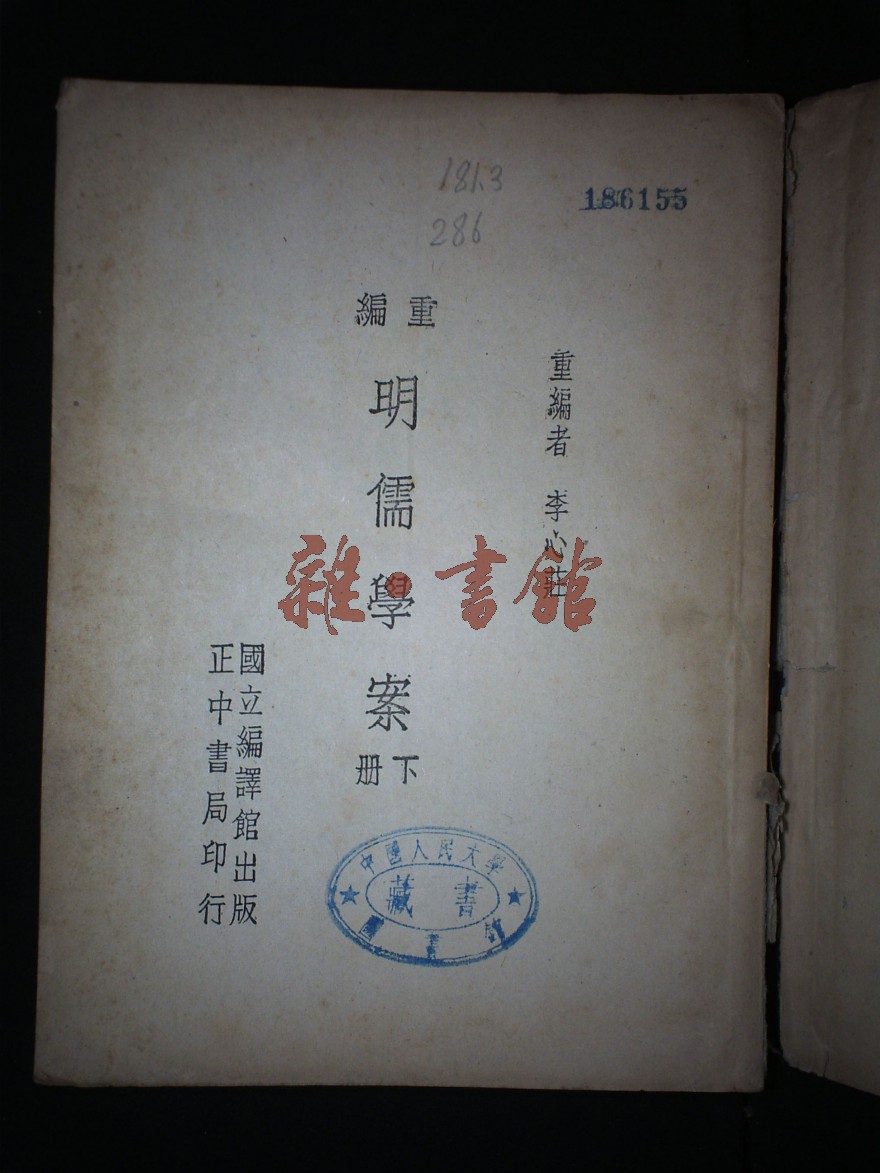 181.3
286
186155
重編者 李心莊
重編
明儒學案
下冊
國立編譯館出版
正中書局印行
雜書館
中國人民大學
圖書館
藏書